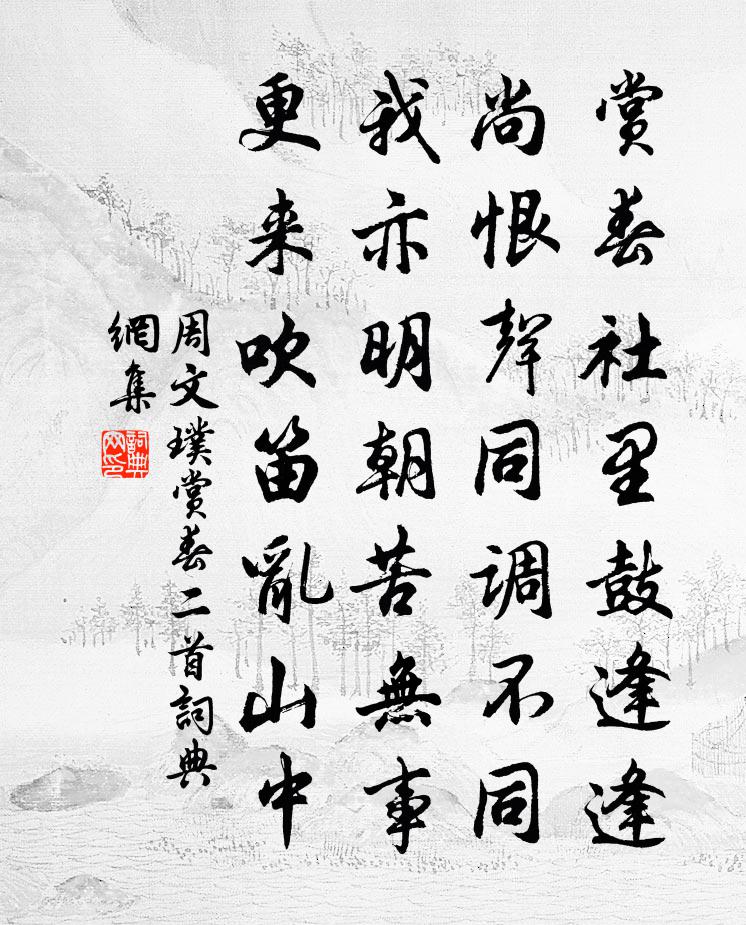 赏春社里鼓逢逢
尚恨聲同调不同
我亦明朝苦無事
更来吹笛亂山中
周文璞赏春二首詞典
網集
詞典網印